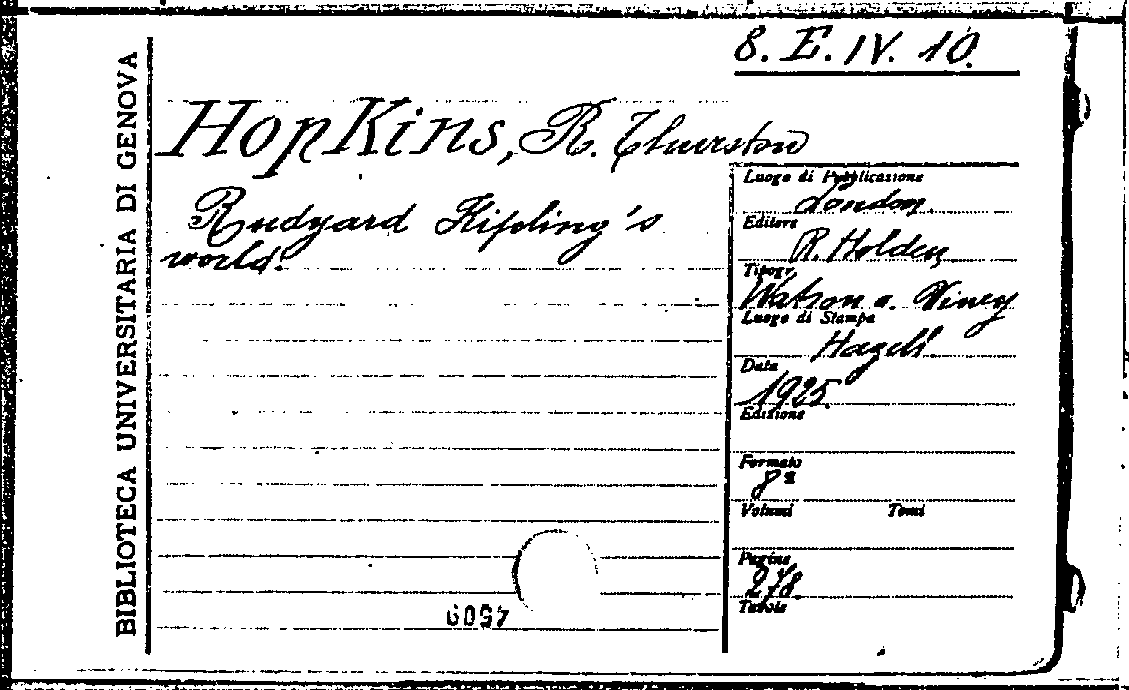 BIBLIOTECA UNIVERSITARIA DI GENOVA
8. E. IV. 10.
HopKins, R. Thurston
Rudyard Kipling's
world.
Luogo di Pubblicazione
London.
Editore
R. Holden
Tipogr.
Watson a. Viney
Luogo di Stampa
Data
1925.
Edizione
Formato
8º
Volumi Tomi
Pagine
278.
Tavole